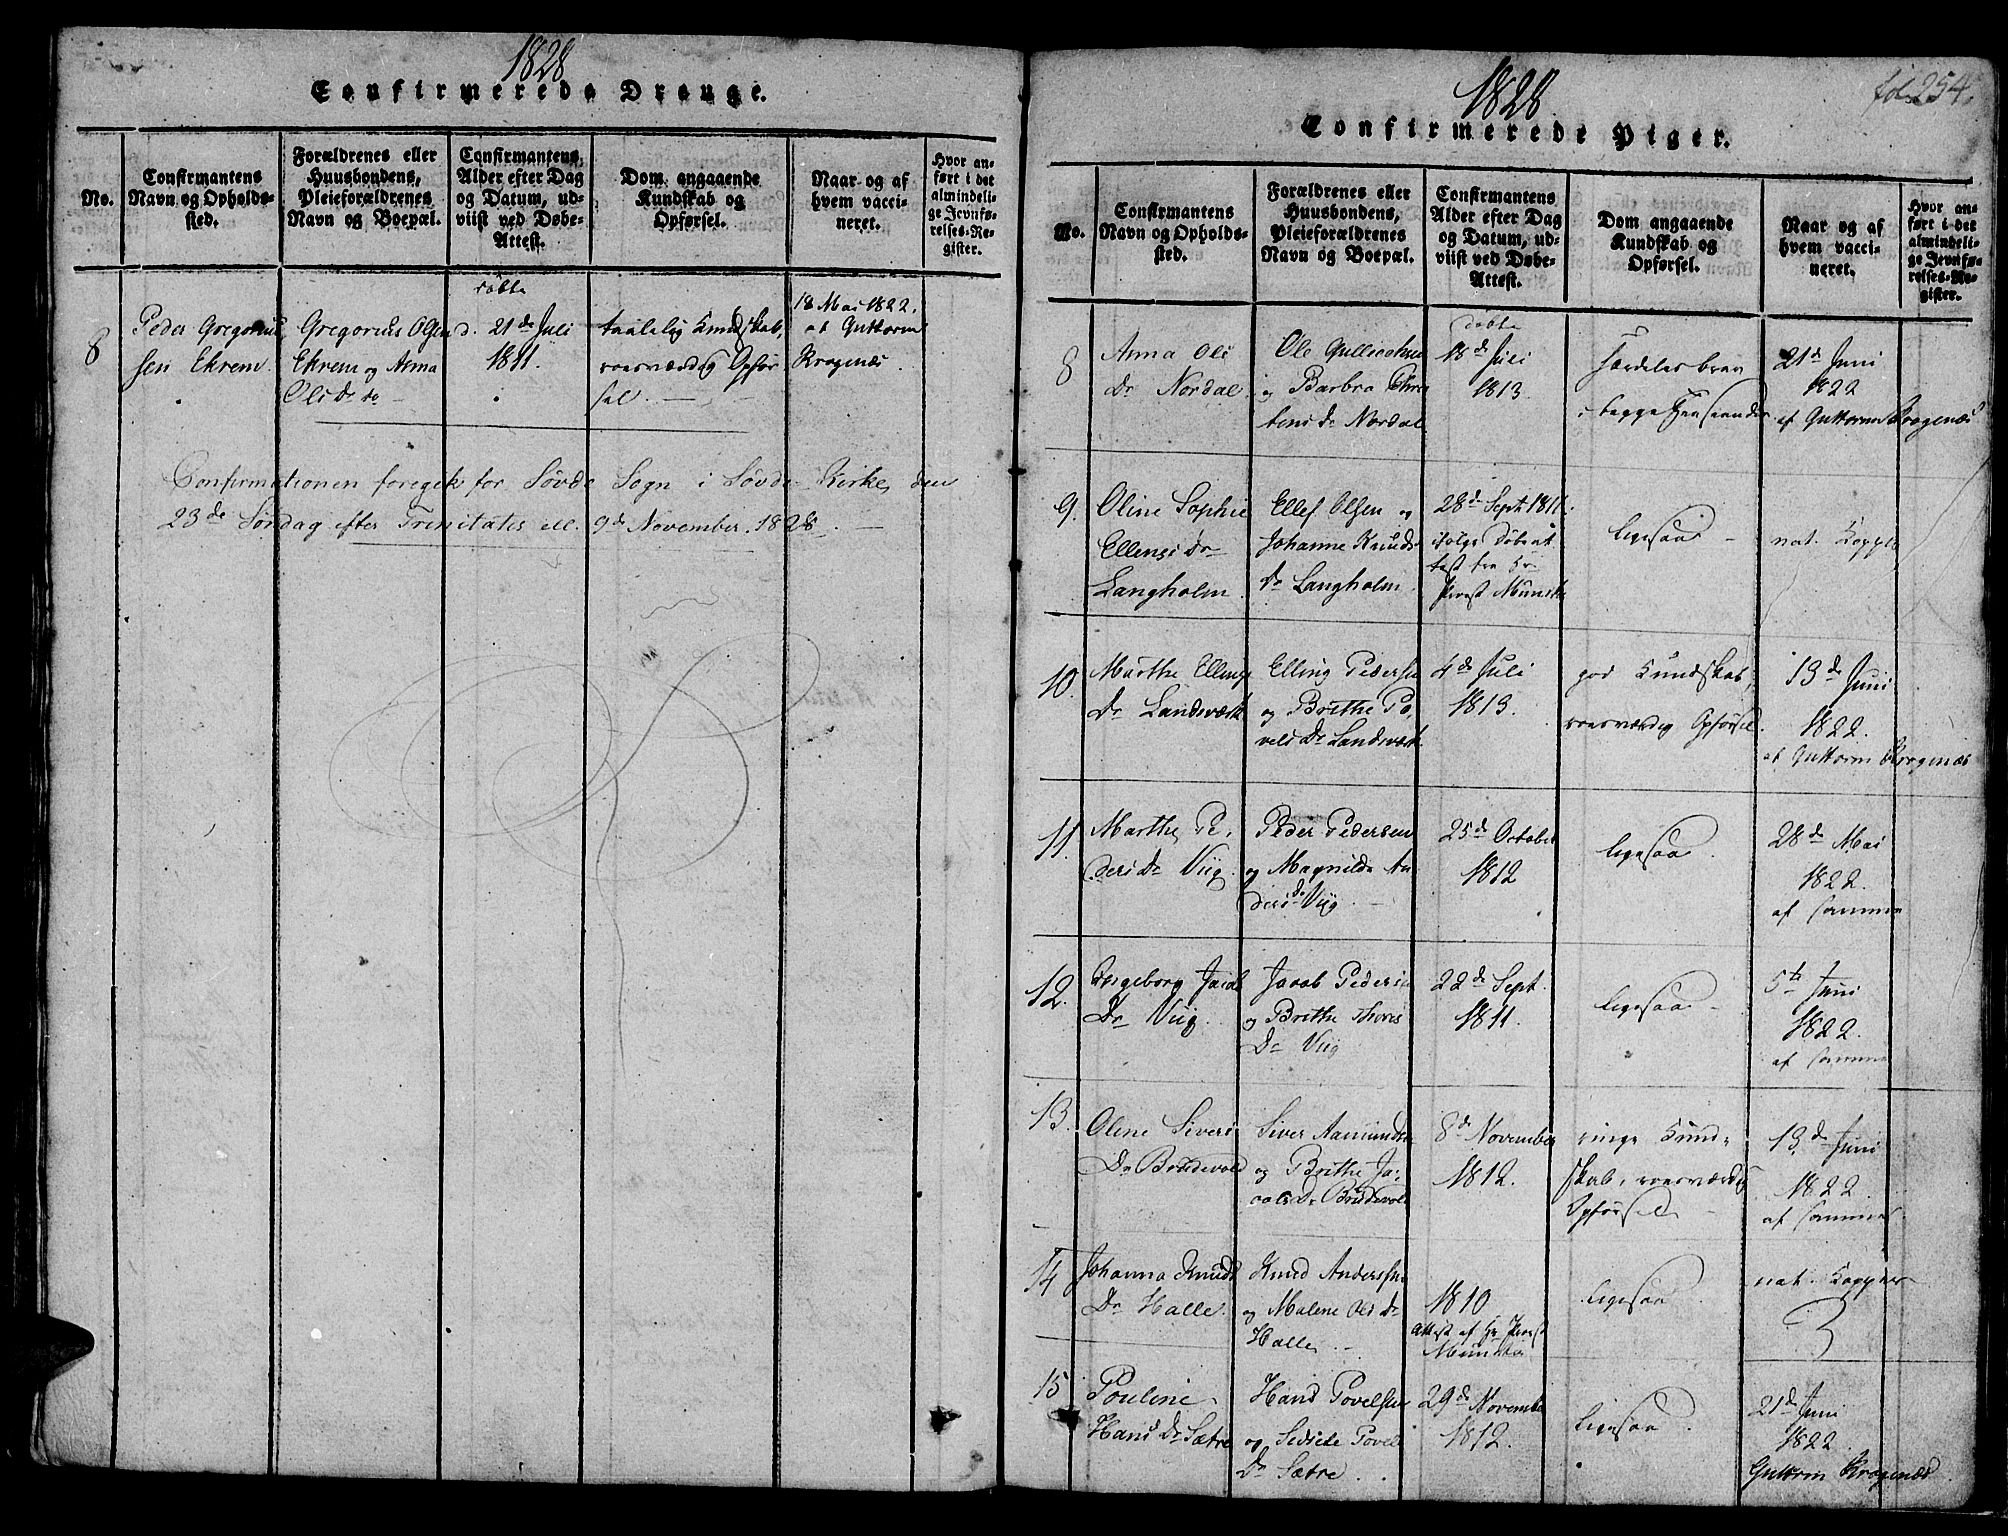 1828
Confirmerede Drenge.
No.
Confirmantens
Navn og Opholds-
sted.
Forældrenes eller
Huusbondens,
Pleieforældrenes
Navn og Boepæl.
Confirmantens,
Alder efter Dag
og Datum, ud-
viist ved Døbe-
Attest.
Dom angaaende
Kundskab og
Opførsel.
Naar og af
hvem vacci-
neret.
Hvor an-
ført i det
almindeli-
ge Jevnfø-
relses-Re-
gister.
8
Peder Gregorius
sen Ekrem.
Gregorius Olsen
Ekrem og Anna
Olsdr do
døbte
d. 21de Juli
1811.
taalelig Kundskab,
roesværdig Opfør
sel.
18 Mai 1822.
af Guttorm
Kragenæs
Confirmationen foregik for Søvde Sogn i Søvde Kirke, den
23de Søndag efter Trinitatis ell. 9de November 1828
1828
fol. 254.
Confirmerede Piger.
No.
Confirmantens
Navn og Opholds-
sted.
Forældrenes eller
Huusbondens,
Pleieforældrenes
Navn og Boepæl.
Confirmantens
Alder efter Dag
og Datum, ud-
viist ved Døbe-
Attest.
Dom angaaende
Kundskab og
Opførsel.
Naar og af
hvem vacci-
neret.
Hvor an-
ført i det
almindeli-
ge Jevnfø-
relses-Re-
gister.
8
Anna Ols
Dr Nordal.
Ole Gullicksen
og Barbra Chris
tens Dr Nordal
døbte
18de Juli
1813.
Særdeles brav
i begge Henseender
21de Juni
1822
af Guttorm Kragenæs
9.
Oline Sophie
Ellens Dr
Langholm.
Ellef Olsen og
Johanne Knuds
Dr Langholm.
28de Sept. 1811.
ifølge Døbeat
test fra Hr
Provst Munthe
ligesaa
nat. Kopper
10.
Marthe Ellings
Dr Landsværk
Elling Pedersen
og Brithe Po,
vels Dr Landsværk
4de Juli
1813.
god Kundskab,
roesværdig Opførsel.
13de Juni
1822.
af Guttorm Kragenæs
11.
Marthe Pe,
ders Dr Viig.
Peder Pedersen
og Magnilde An
ders Dr Viig.
25de October
1812
ligesaa.
28de Mai
1822.
af samme
12.
Ingeborg Jacobs
Dr Viig.
Jacob Pedersen
og Brithe Thores
Dr Viig
22de Sept.
1811.
ligesaa
5te Juni
1822.
af samme
13.
Olene Sivers
Dr Brudevold
Siver Aamunds
og Brithe Ja,
cobs Dr Brudevold
8de November
1812.
ringe Kund=
skab, roesværdig
Opførsel
13de Juni
1822
af samme
14
Johanna Knuds
Dr Halle.
Knud Andersen
og Malene Ols Dr
Halle.
1810
Attest af Hr Provst
Munthe
ligesaa
nat. Kopper
3
15
Pouline
Hans Dr Sætre
Hans Povelsen
og Sidsele Povels
Dr Sætre.
29de November
1812.
ligesaa.
21de Juni
1822.
Guttorm Kragenæs.